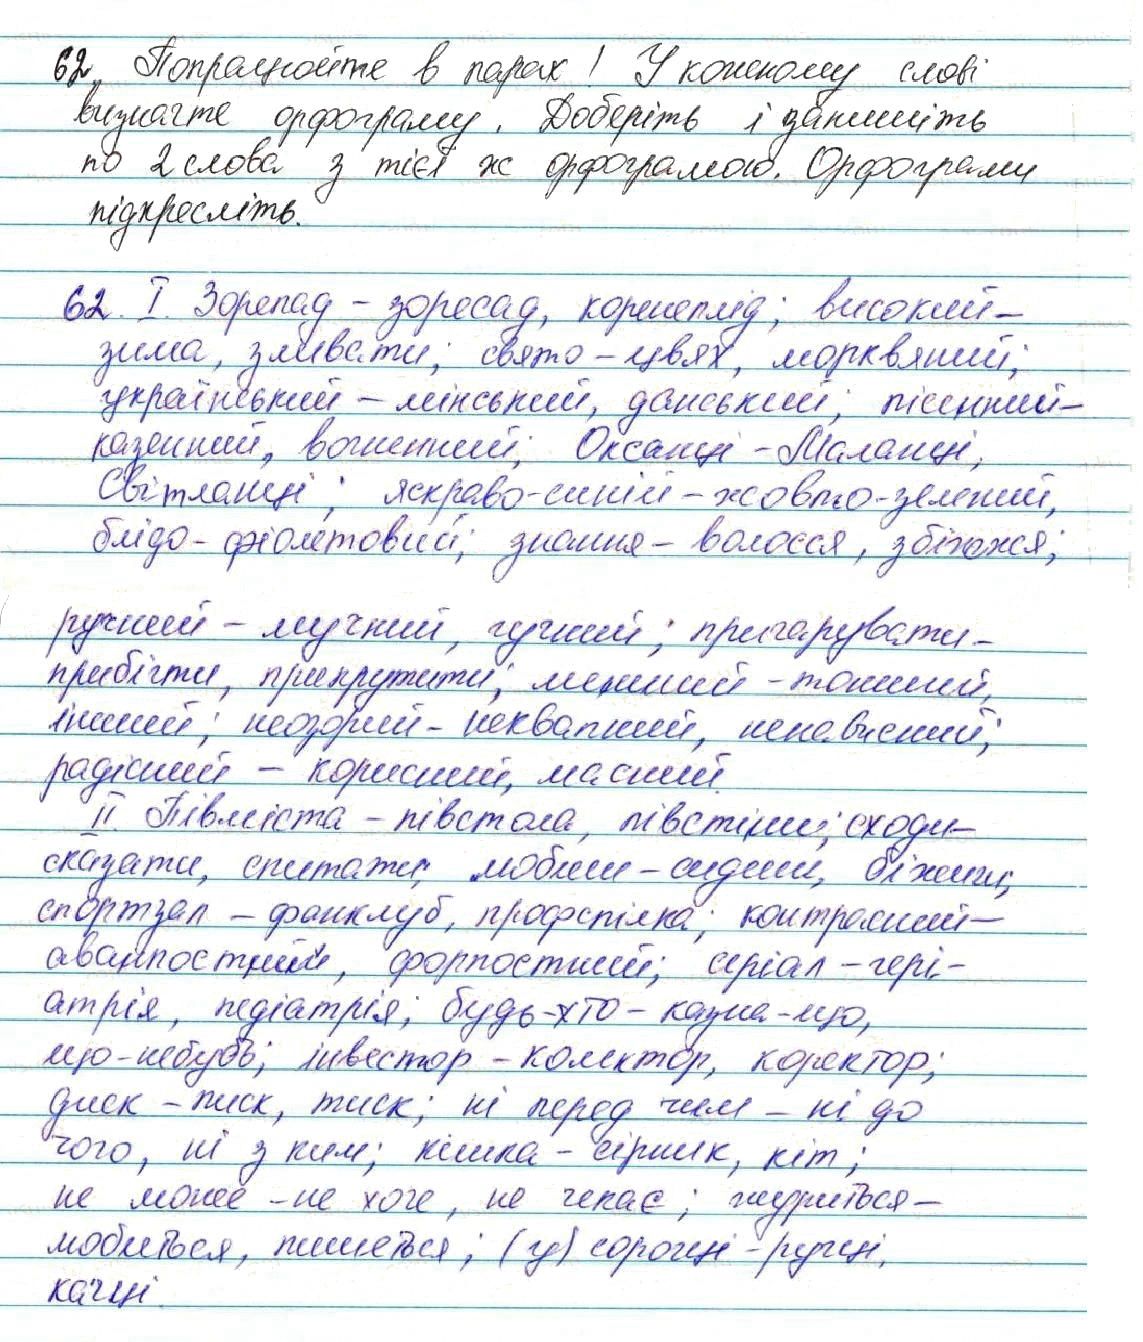 62. Попрацюйте в парах! У кожному слові
визначте орфограму. Доберіть і запишіть
по 2 слова з тієї ж орфограмою. Орфограми
підкресліть.
62. I. Зорепад – зоресад, коренеплід; високий –
зима, зливати; свято – цвях, морквяний;
український – мінський, данський; пісенний –
казенний, вогненний; Оксанці – Маланці,
Світланці; яскраво-синій – жовто-зелений,
блідо-фіолетовий; знання – волосся, збіжжя;
ручний – мучний, гучний; пригарувати –
прибігти, прикрутити; менший – тонший,
інший; неозорий – неквапний, ненависний;
радісний – корисний, масний.
II. Півміста – півстола, півстіни; сходи –
сказати, спитати; любиш – сидиш, біжиш;
спортзал – фанклуб, профспілка; контрасний –
аванпостний, форпостний; серіал – гері-
атрія, педіатрія; будь-хто – казна-що,
що-небудь; інвестор – колектор, коректор;
диск – писк, тиск; ні перед чим – ні до
чого, ні з ким; кішка – сірник, кіт;
не може – не хоче, не чекає; журиться –
любиться, пишеться; (у) сорочці – ручці,
качці.